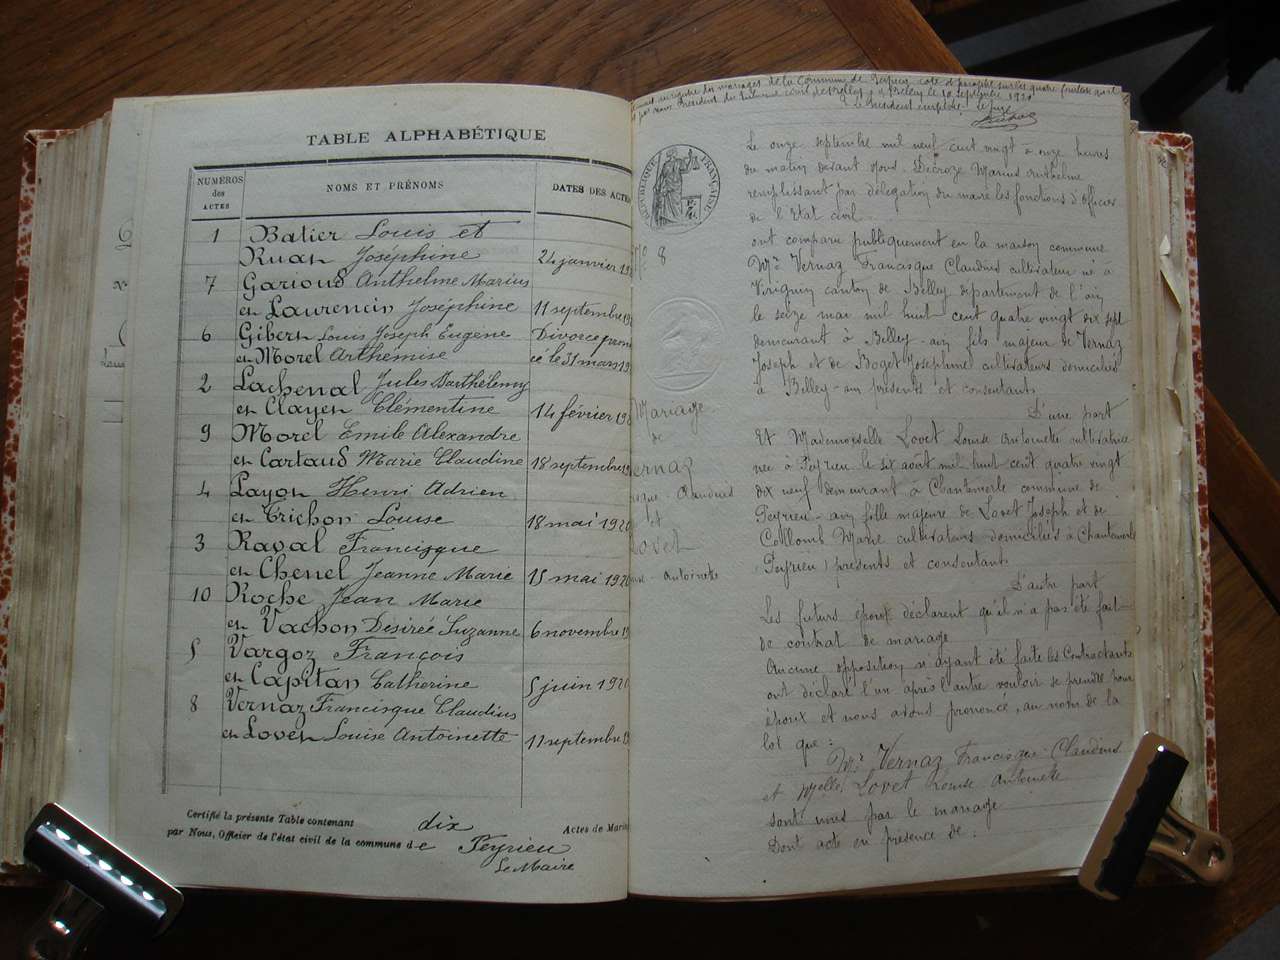 TABLE ALPHABÉTIQUE
NUMÉROS des ACTES
NOMS ET PRÉNOMS
DATES DES ACTES
1 Batier Louis et
Ruan Joséphine 24 janvier 19
7 Garioud Anthelme Marius
et Laurencin Joséphine 11 septembre 19
6 Gibert Louis Joseph Eugène Divorce pronon
et Morel Arthémise cé le 31 mars 19
2 Lachenal Jules Barthélemy
et Clayet Clémentine 14 février 19
9 Morel Emile Alexandre
et Cartaud Marie Claudine 18 septembre 19
4 Payon Henri Adrien
et Trichon Louise 18 mai 1920
3 Raval Francisque
et Chenel Jeanne Marie 15 mai 1920
10 Roche Jean Marie
et Vachon Désirée Suzanne 6 novembre 19
5 Vargoz François
et Capitan Catherine 5 juin 1920
8 Vernaz Francisque Claudius
et Lovet Louise Antoinette 11 septembre 19
Certifié la présente Table contenant dix Actes de Maria
par Nous, Officier de l'état civil de la commune de Peyrieu
Le Maire
registre des mariages de la Commune de Peyrieu coté et paraphé sur les quatre
par nous Président du Tribunal civil de Belley, à Belley le 10 Septembre 1920
Le Président empêché le juge
RÉPUBLIQUE FRANÇAISE
N° 8
Mariage
de
ernaz
isque Claudius
et
Lovet
ise Antoinette
Le onze septembre mil neuf cent vingt à onze heures
du matin devant Nous Décroze Marius Anthelme
remplissant par délégation du maire les fonctions d'Officier
de l'Etat civil
ont comparu publiquement en la maison commune
Mr Vernaz Francisque Claudius cultivateur né à
Virignin canton de Belley département de l'ain
le seize mai mil huit cent quatre vingt dix sept
demeurant à Belley - ain fils majeur de Vernaz
Joseph et de Boget Joséphine cultivateurs domiciliés
à Belley - ain présents et consentants
D'une part
Et Mademoiselle Lovet Louise Antoinette cultivatrice
née à Peyrieu le six août mil huit cent quatre vingt
dix neuf demeurant à Chantemerle commune de
Peyrieu - ain fille majeure de Lovet Joseph et de
Collomb Marie cultivateurs domiciliés à Chantemerle
(Peyrieu) présents et consentant.
D'autre part
Les futurs époux déclarent qu'il n'a pas été fait
de contrat de mariage
Aucune opposition n'ayant été faite les Contractants
ont déclaré l'un après l'autre vouloir se prendre pour
époux et nous avons prononcé, au nom de la
loi que :
Mr Vernaz Francisque Claudius
et Melle Lovet Louise Antoinette
sont unis par le mariage
Dont acte en présence de :